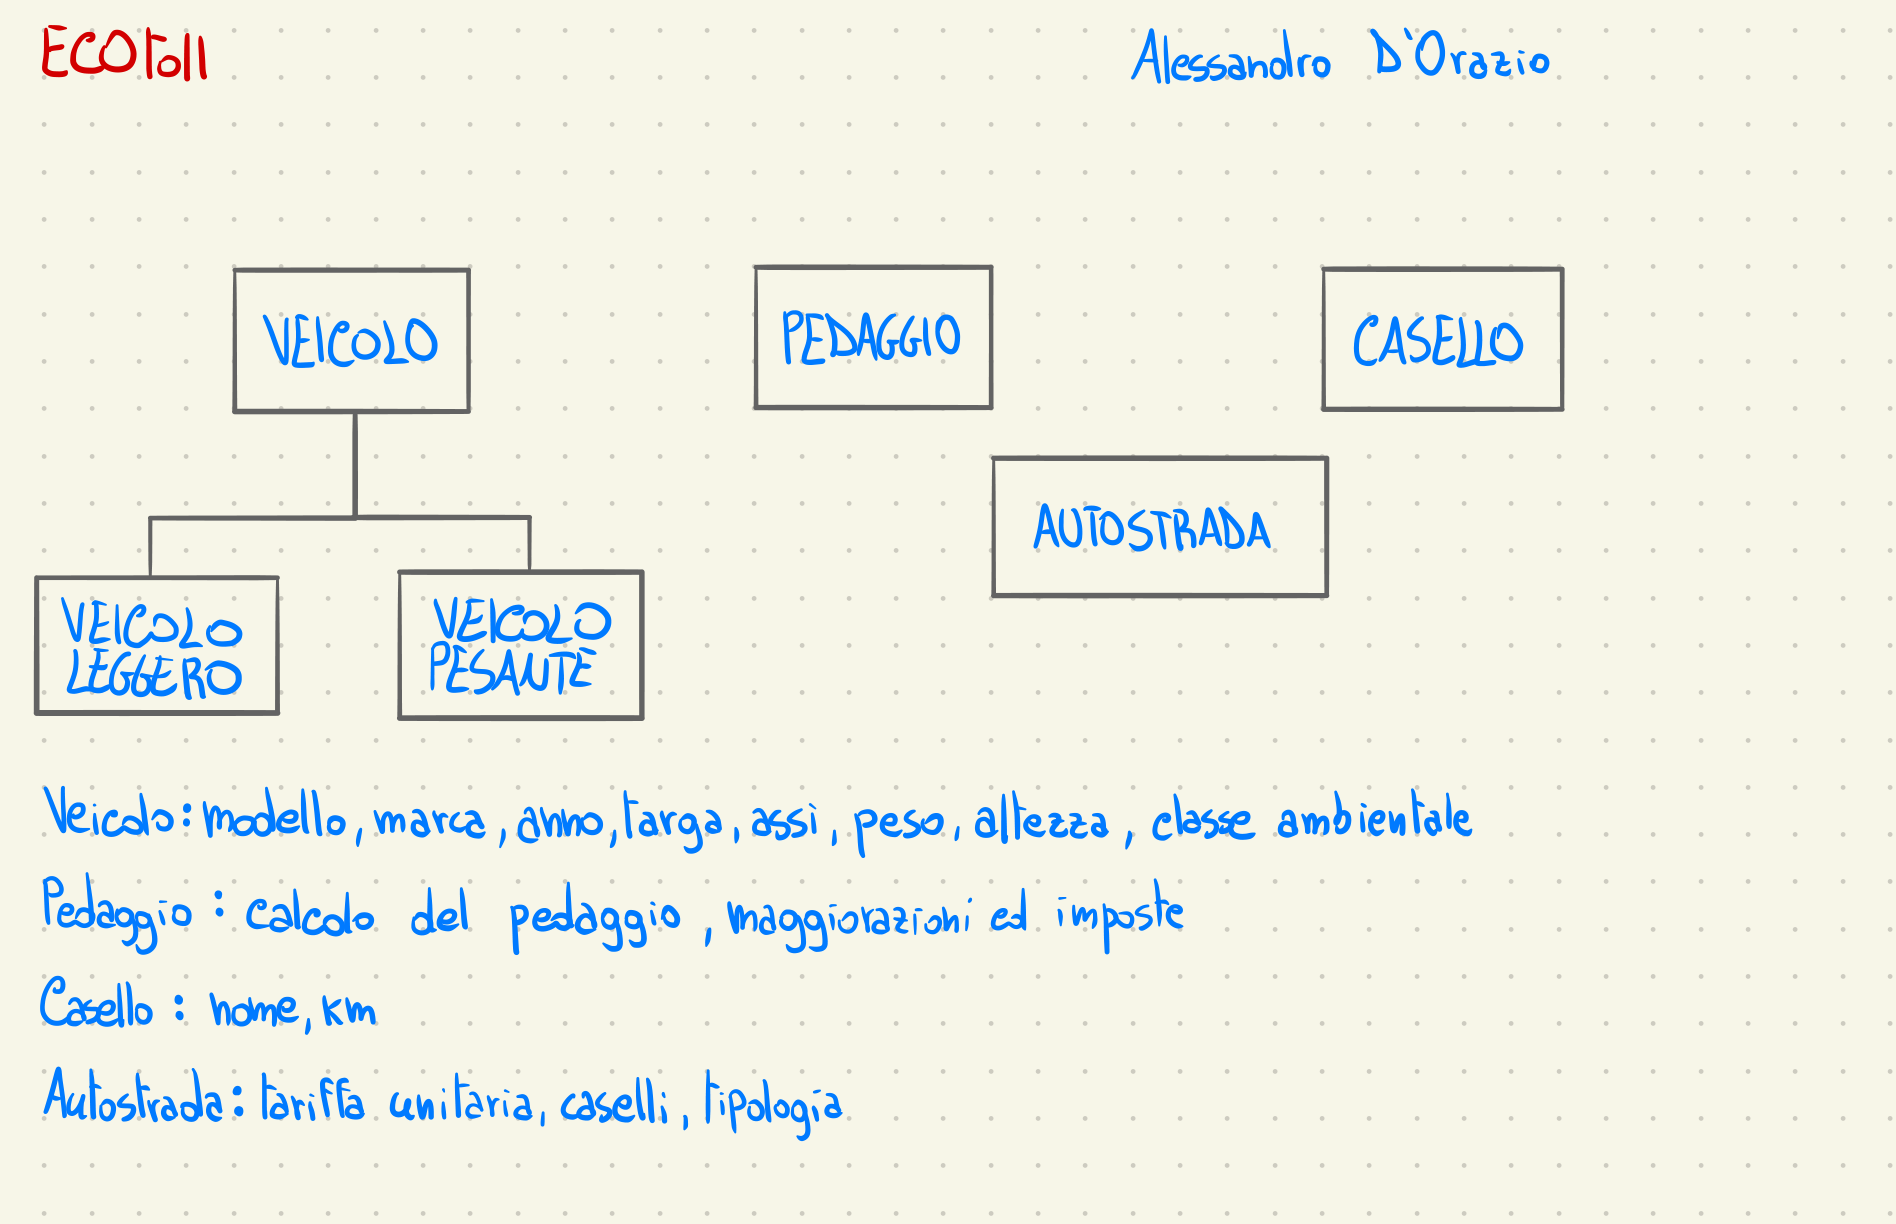 ECOToll
Alessandro D'Orazio
VEICOLO
PEDAGGIO
CASELLO
AUTOSTRADA
VEICOLO
LEGGERO
VEICOLO
PESANTE
Veicolo: modello, marca, anno, targa, assi, peso, altezza, classe ambientale
Pedaggio: calcolo del pedaggio, maggiorazioni ed imposte
Casello: nome, km
Autostrada: tariffa unitaria, caselli, tipologia